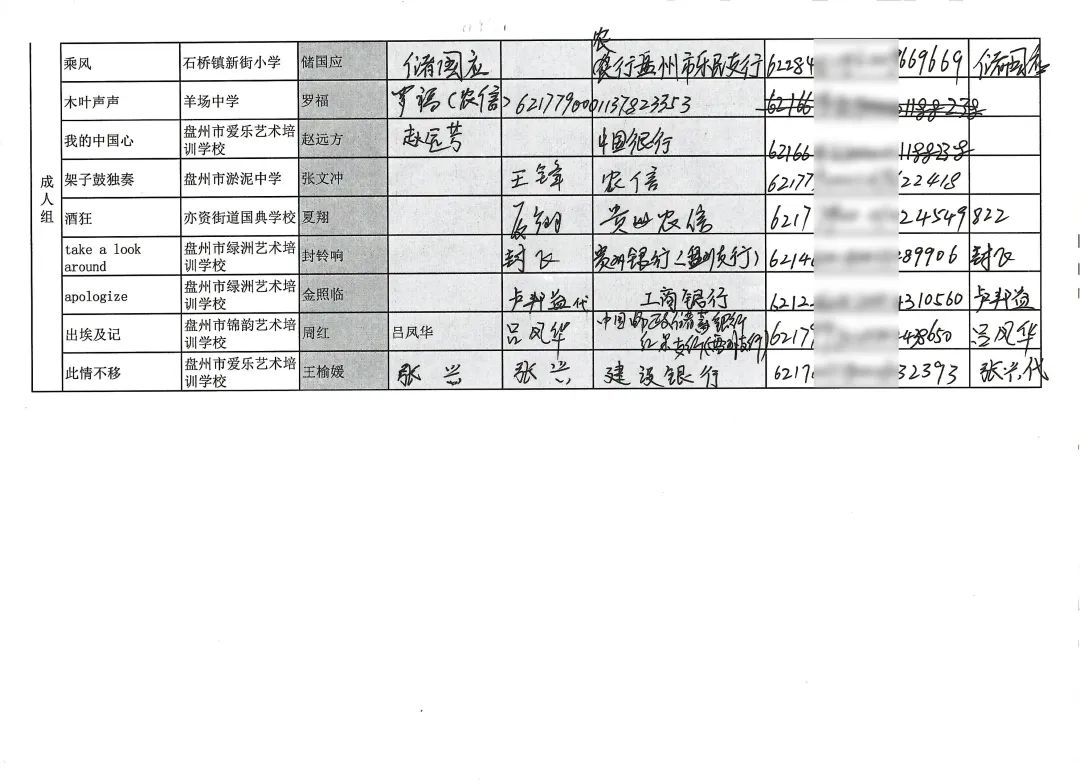 成人组
乘风 石桥镇新街小学 储国应 储国应 农行盘州市乐民支行 62284 669669 储国应
木叶声声 羊场中学 罗福 罗福（农信）6217790001137823353 62166 1188238
我的中国心 盘州市爱乐艺术培训学校 赵远方 中国银行 62166 1188238
架子鼓独奏 盘州市淤泥中学 张文冲 王锋 农信 62177 22418
酒狂 亦资街道国典学校 夏翔 夏翔 贵州农信 6217 24549822
take a look around 盘州市绿洲艺术培训学校 封铃响 封飞 贵州银行（盘州支行） 6214 89906 封飞
apologize 盘州市绿洲艺术培训学校 金照临 卢邦益代 工商银行 6212 310560 卢邦益
出埃及记 盘州市锦韵艺术培训学校 周红 吕凤华 吕凤华 中国邮政储蓄银行 62179 438650 吕凤华
此情不移 盘州市爱乐艺术培训学校 王榆媛 张兴 张兴 建设银行 6217 32393 张兴代